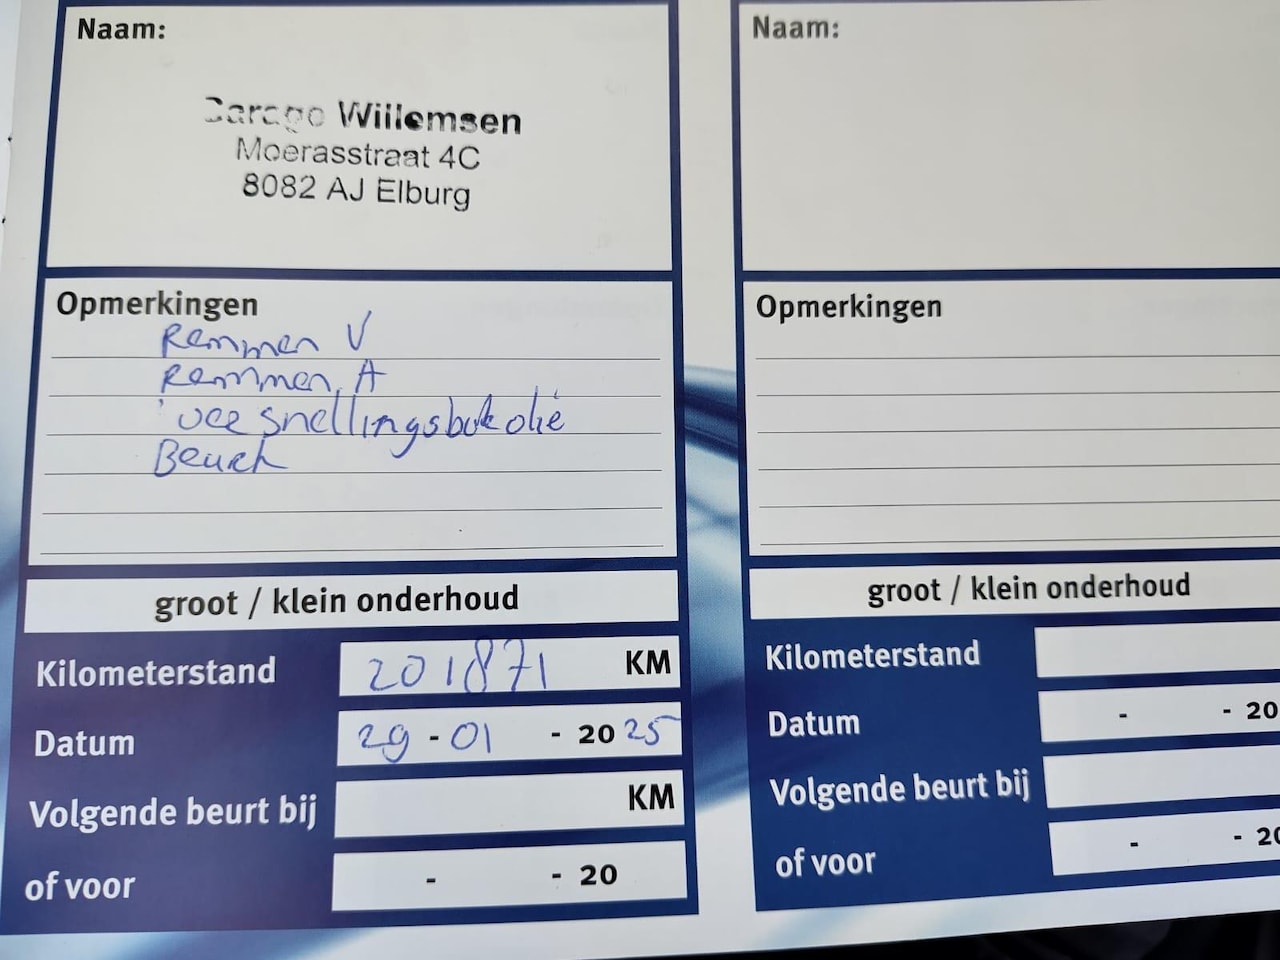 Naam:
Garage Willemsen
Moerasstraat 4C
8082 AJ Elburg
Opmerkingen
Remmen V
Remmen A
versnellingsbak olie
Beurt
groot / klein onderhoud
Kilometerstand 201871 KM
Datum 29 - 01 - 20 25
Volgende beurt bij KM
of voor - - 20
Naam:
Opmerkingen
groot / klein onderhoud
Kilometerstand
Datum - - 20
Volgende beurt bij
of voor - - 20